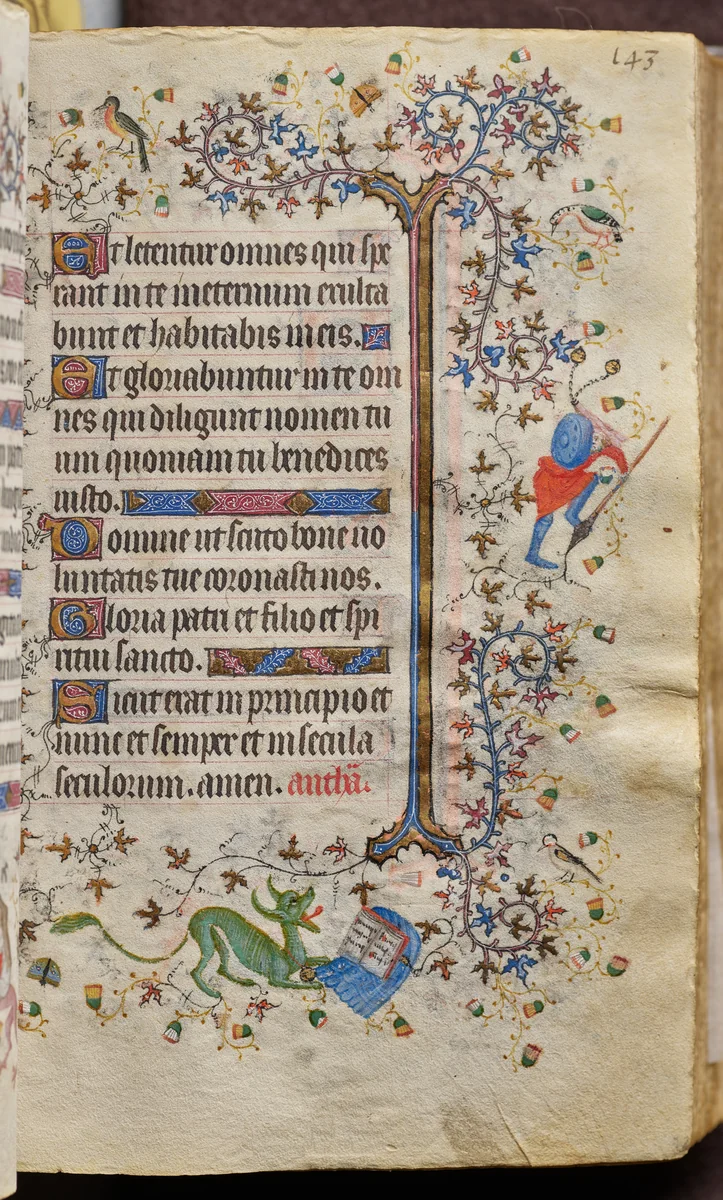 143
Et letentur omnes qui spe
rant in te in eternum exulta
bunt et habitabis in eis.
Et gloriabuntur in te om
nes qui diligunt nomen tu
um quoniam tu benedices
iusto.
Domine ut scuto bone uo
luntatis tue coronasti nos.
Gloria patri et filio et spi
ritui sancto.
Sicut erat in principio et
nunc et semper et in secula
seculorum. amen. anthā.